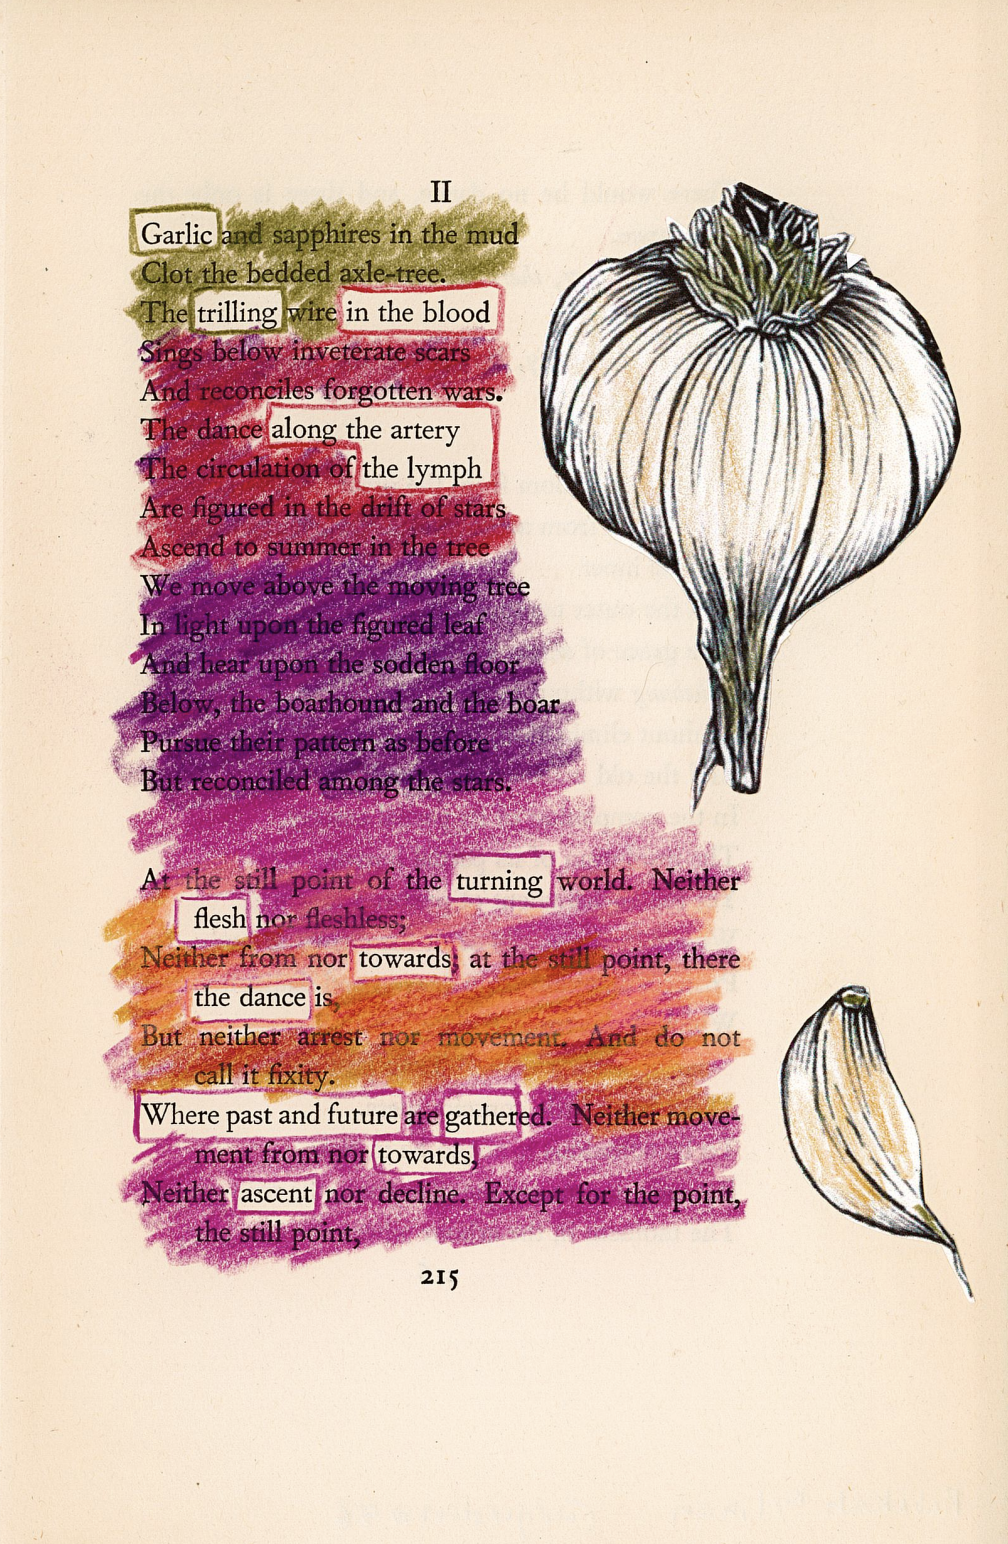 II
Garlic and sapphires in the mud
Clot the bedded axle-tree.
The trilling wire in the blood
Sings below inveterate scars
And reconciles forgotten wars.
The dance along the artery
The circulation of the lymph
Are figured in the drift of stars
Ascend to summer in the tree
We move above the moving tree
In light upon the figured leaf
And hear upon the sodden floor
Below, the boarhound and the boar
Pursue their pattern as before
But reconciled among the stars.
At the still point of the turning world. Neither
flesh nor fleshless;
Neither from nor towards; at the still point, there
the dance is,
But neither arrest nor movement. And do not
call it fixity.
Where past and future are gathered. Neither move-
ment from nor towards,
Neither ascent nor decline. Except for the point,
the still point,
215